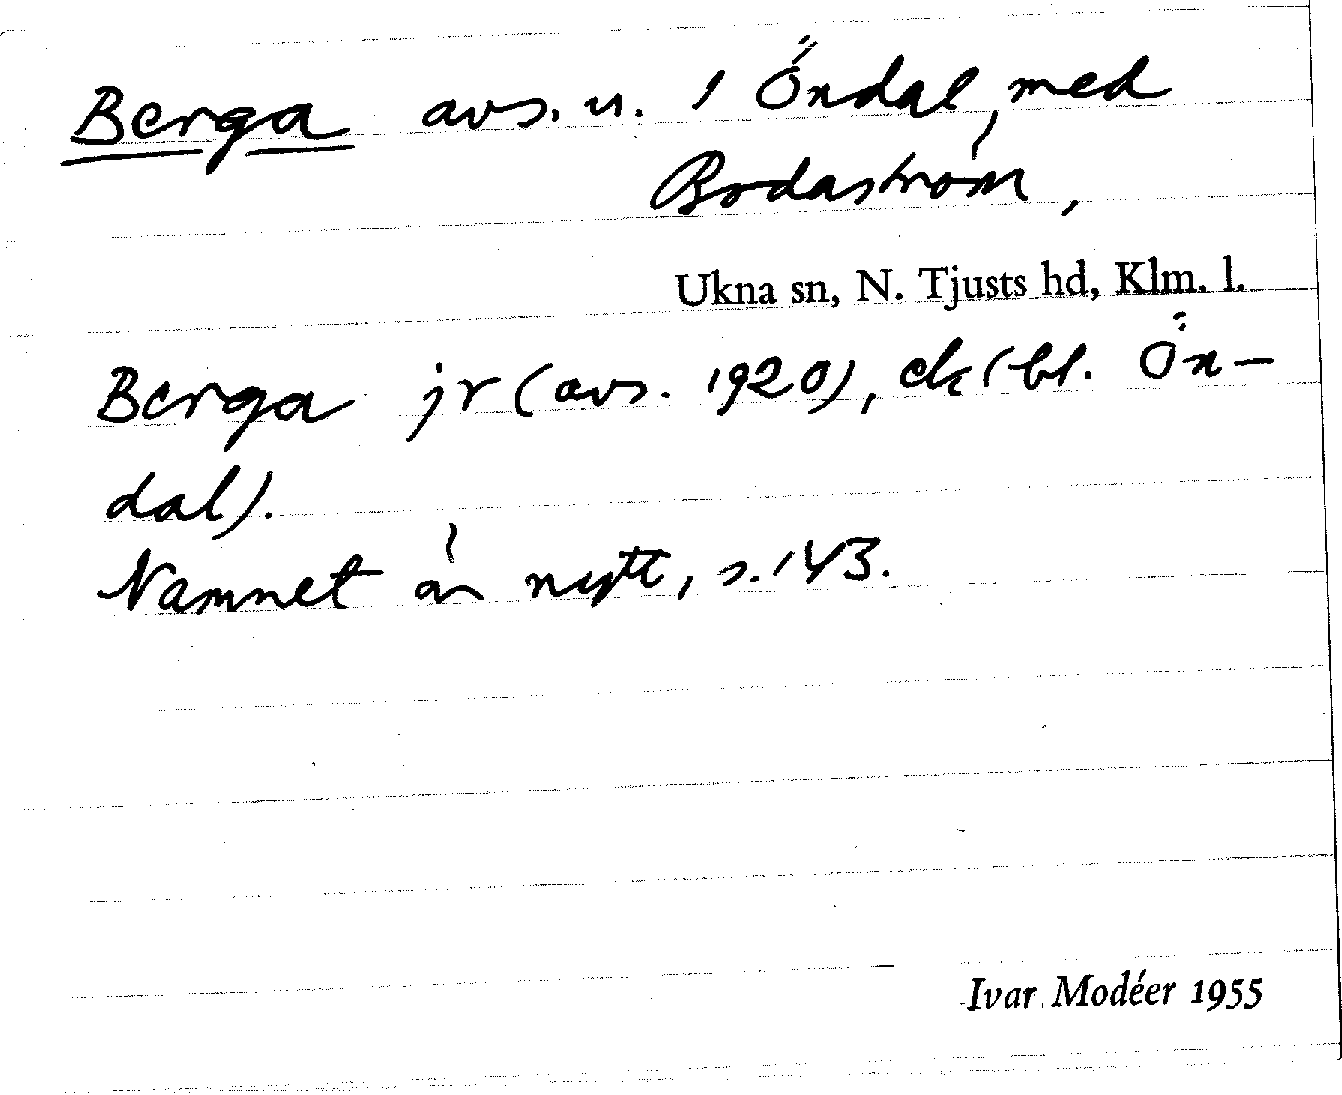 Berga avs. u. 1 Öndal, med
Bodaström,
Ukna sn, N. Tjusts hd, Klm. l.
Berga jr (avs. 1920), ek (bl. Ön-
dal).
Namnet är nytt, s. 143.
Ivar Modéer 1955